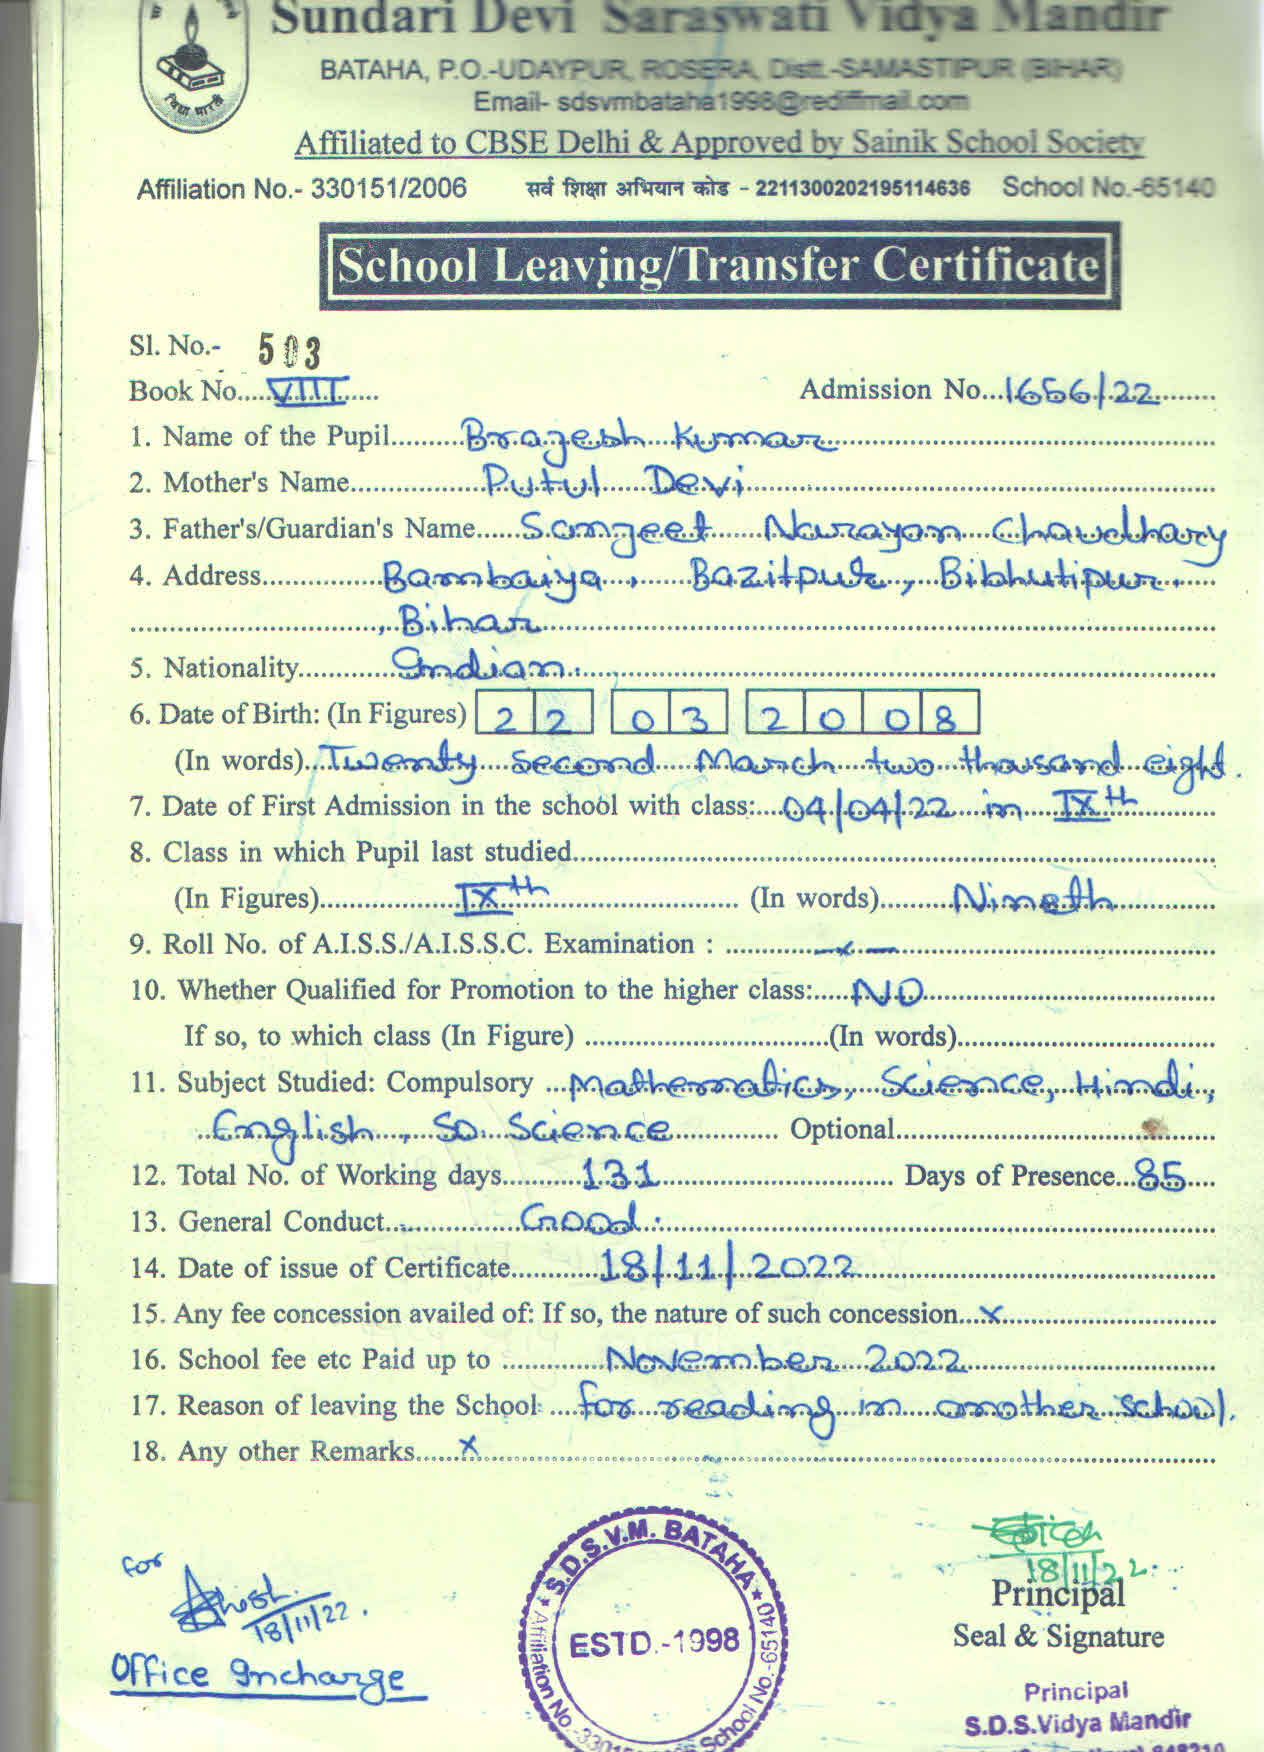 Sundari Devi Saraswati Vidya Mandir
BATAHA, P.O.-UDAYPUR, ROSERA, Distt.-SAMASTIPUR (BIHAR)
Email- sdsvmbataha1998@rediffmail.com
Affiliated to CBSE Delhi & Approved by Sainik School Society
Affiliation No.- 330151/2006 सर्व शिक्षा अभियान कोड - 2211300202195114636 School No.-65140
School Leaving/Transfer Certificate
Sl. No.- 503
Book No.....VIII...... Admission No...1656/22........
1. Name of the Pupil.........Brajesh Kumar
2. Mother's Name................Putul Devi
3. Father's/Guardian's Name......Sangeet Narayan Chawdhary
4. Address...............Bambaiya, Bazitpur, Bibhutipur,
, Bihar
5. Nationality............Indian.
6. Date of Birth: (In Figures) 22 03 2008
(In words)...Twenty second March two thousand eight.
7. Date of First Admission in the school with class:....04/04/22 in IXth
8. Class in which Pupil last studied
(In Figures)..................IXth (In words).........Nineth
9. Roll No. of A.I.S.S./A.I.S.S.C. Examination : ..........-x-
10. Whether Qualified for Promotion to the higher class:.....NO
If so, to which class (In Figure) ............................(In words)
11. Subject Studied: Compulsory ...Mathematics, Science, Hindi,
English, So. Science Optional
12. Total No. of Working days..........131 Days of Presence...85....
13. General Conduct..............Good.
14. Date of issue of Certificate..........18/11/2022
15. Any fee concession availed of: If so, the nature of such concession....x
16. School fee etc Paid up to .............November 2022
17. Reason of leaving the School: ....for reading in another school.
18. Any other Remarks......x
for
18/11/22.
Office Incharge
S.D.S.V.M. BATAHA
ESTD.-1998
Affiliation No.- School No.-65140
18/11/22.
Principal
Seal & Signature
Principal
S.D.S.Vidya Mandir